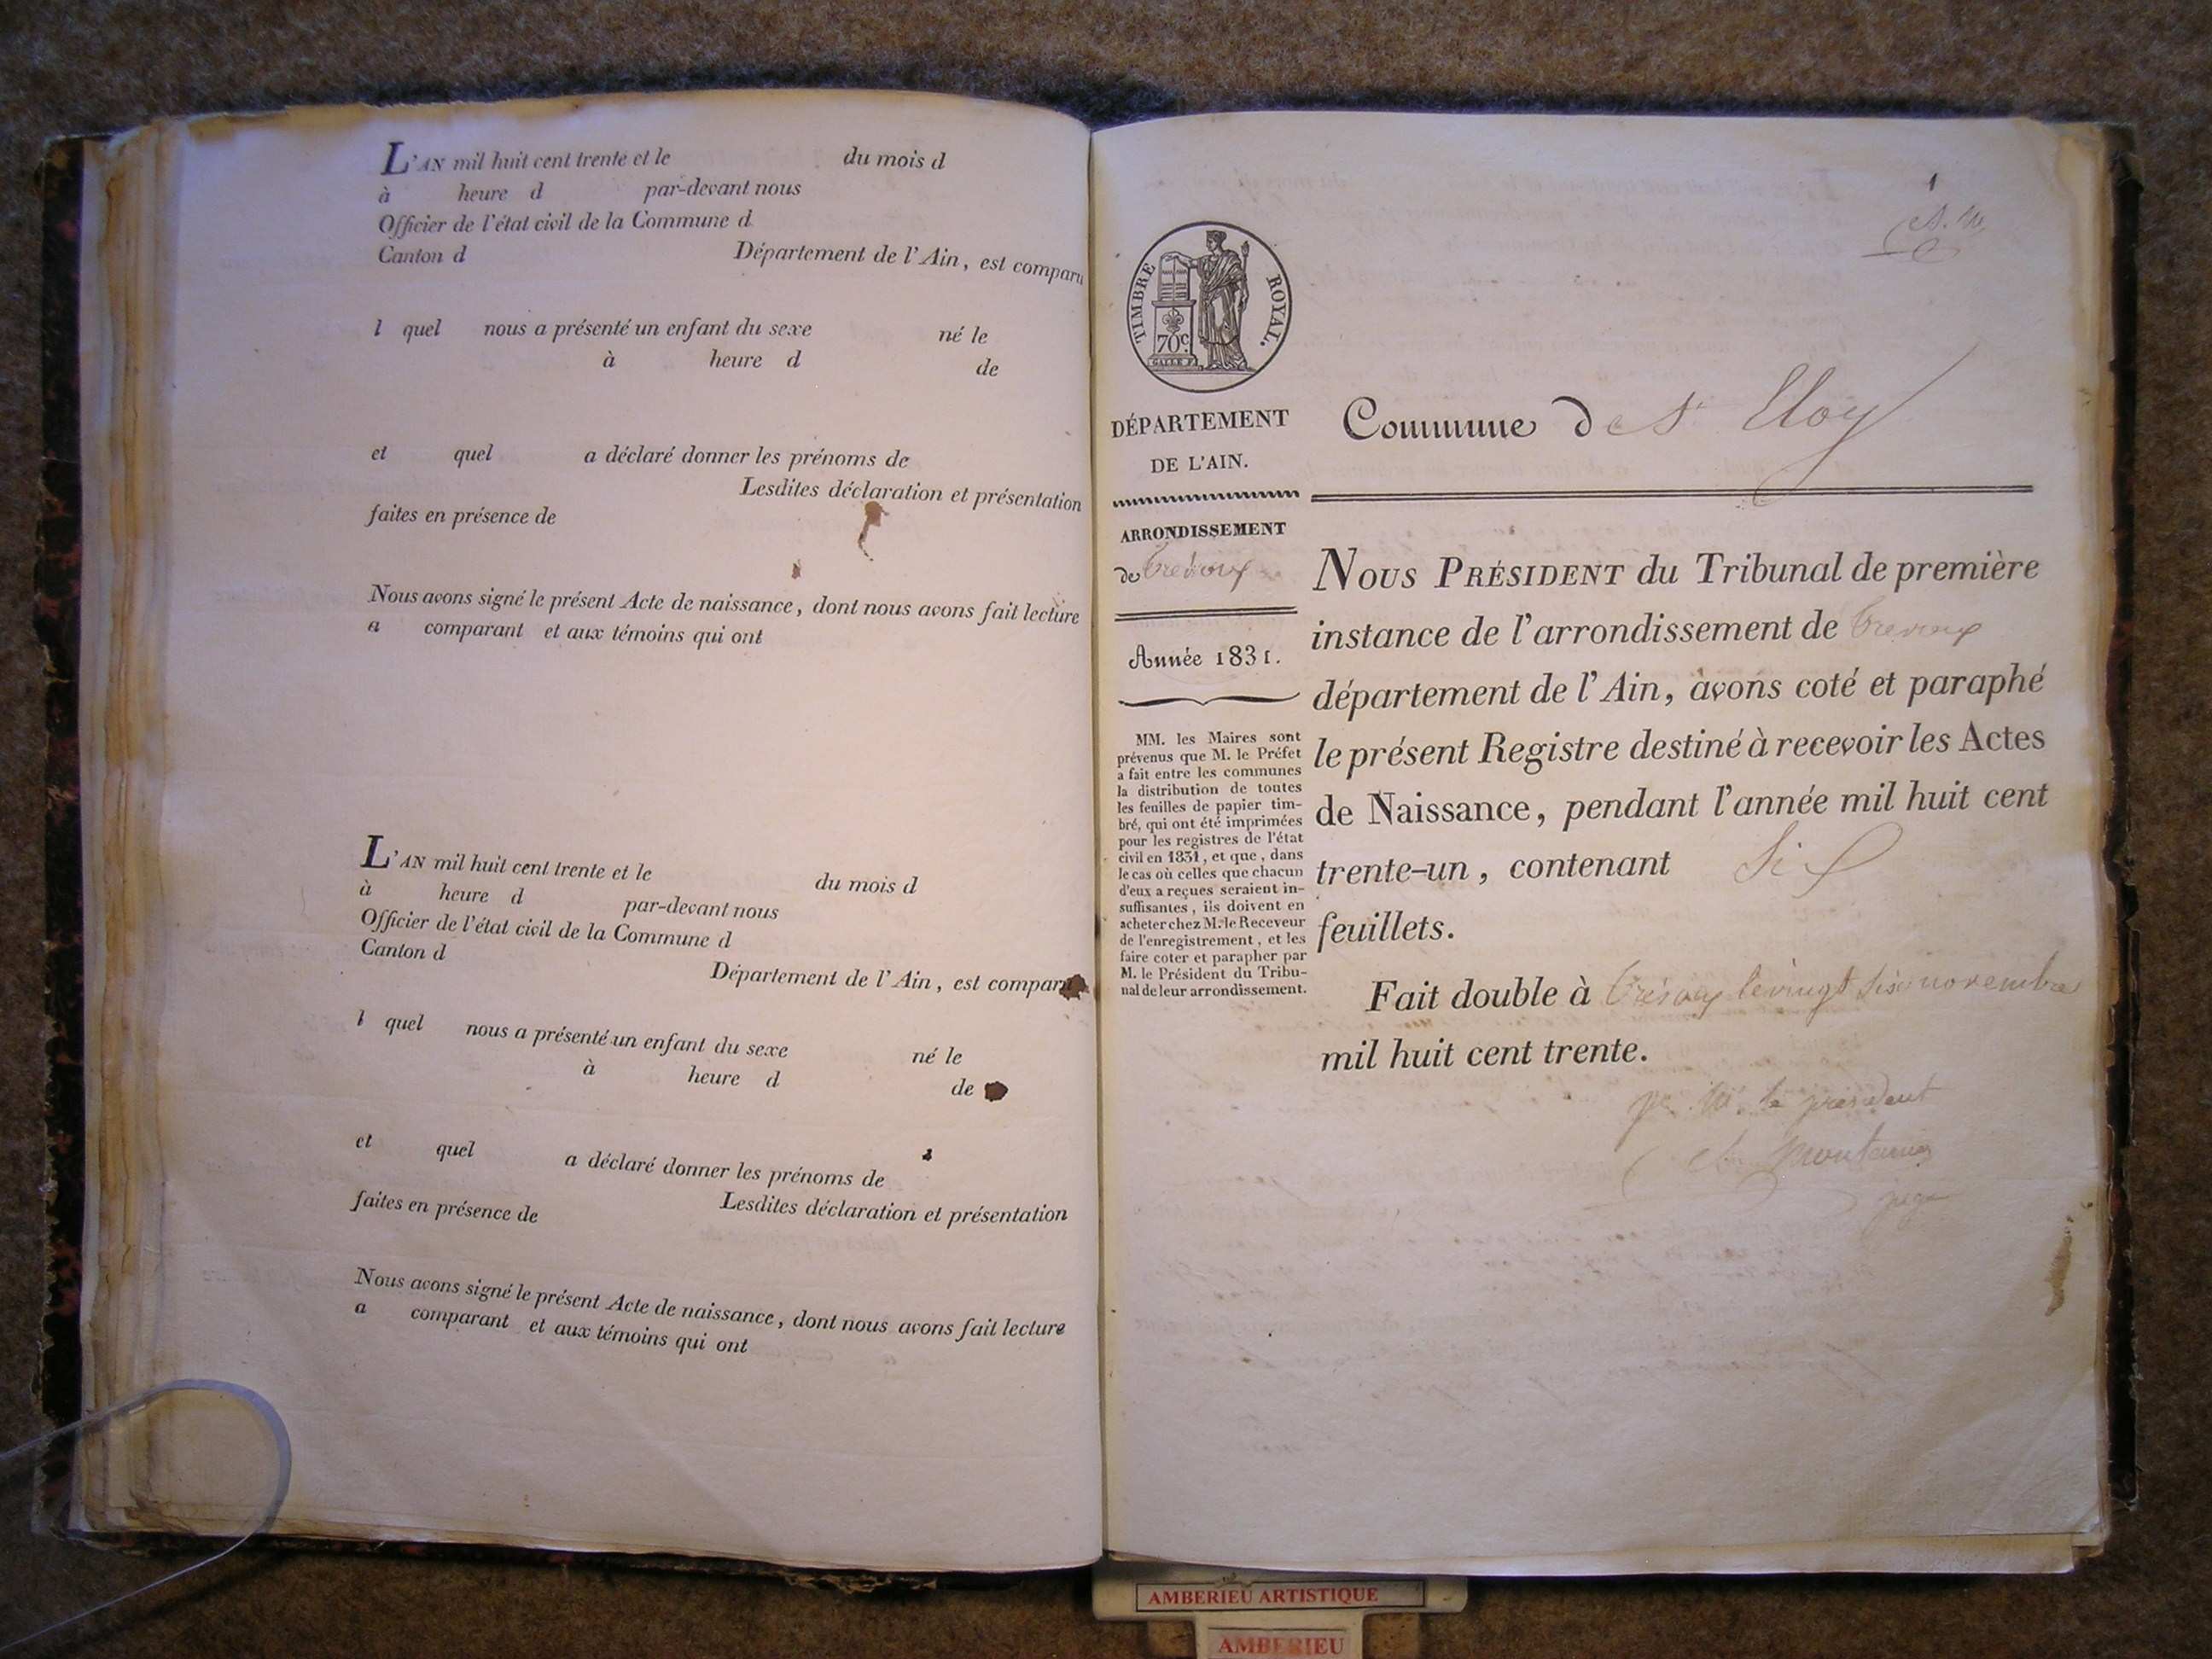 L'AN mil huit cent trente et le du mois d
à heure d par-devant nous
Officier de l'état civil de la Commune d
Canton d Département de l'Ain, est comparu
l quel nous a présenté un enfant du sexe né le
à heure d de
et quel a déclaré donner les prénoms de
Lesdites déclaration et présentation
faites en présence de
Nous avons signé le présent Acte de naissance, dont nous avons fait lecture
a comparant et aux témoins qui ont
L'AN mil huit cent trente et le du mois d
à heure d par-devant nous
Officier de l'état civil de la Commune d
Canton d Département de l'Ain, est comparu
l quel nous a présenté un enfant du sexe né le
à heure d de
et quel a déclaré donner les prénoms de
Lesdites déclaration et présentation
faites en présence de
Nous avons signé le présent Acte de naissance, dont nous avons fait lecture
a comparant et aux témoins qui ont
1
TIMBRE ROYAL.
70c.
GALLE F.
DÉPARTEMENT
DE L'AIN.
ARRONDISSEMENT
de Trevoux
Année 1831.
MM. les Maires sont
prévenus que M. le Préfet
a fait entre les communes
la distribution de toutes
les feuilles de papier tim-
bré, qui ont été imprimées
pour les registres de l'état
civil en 1831, et que, dans
le cas où celles que chacun
d'eux a reçues seraient in-
suffisantes, ils doivent en
acheter chez M. le Receveur
de l'enregistrement, et les
faire coter et parapher par
M. le Président du Tribu-
nal de leur arrondissement.
Commune de St Eloy
NOUS PRÉSIDENT du Tribunal de première
instance de l'arrondissement de Trevoux
département de l'Ain, avons coté et paraphé
le présent Registre destiné à recevoir les Actes
de Naissance, pendant l'année mil huit cent
trente-un, contenant Six
feuillets.
Fait double à Trévoux le vingt six novembre
mil huit cent trente.
pr Mr le president
juge
AMBERIEU ARTISTIQUE
AMBERIEU